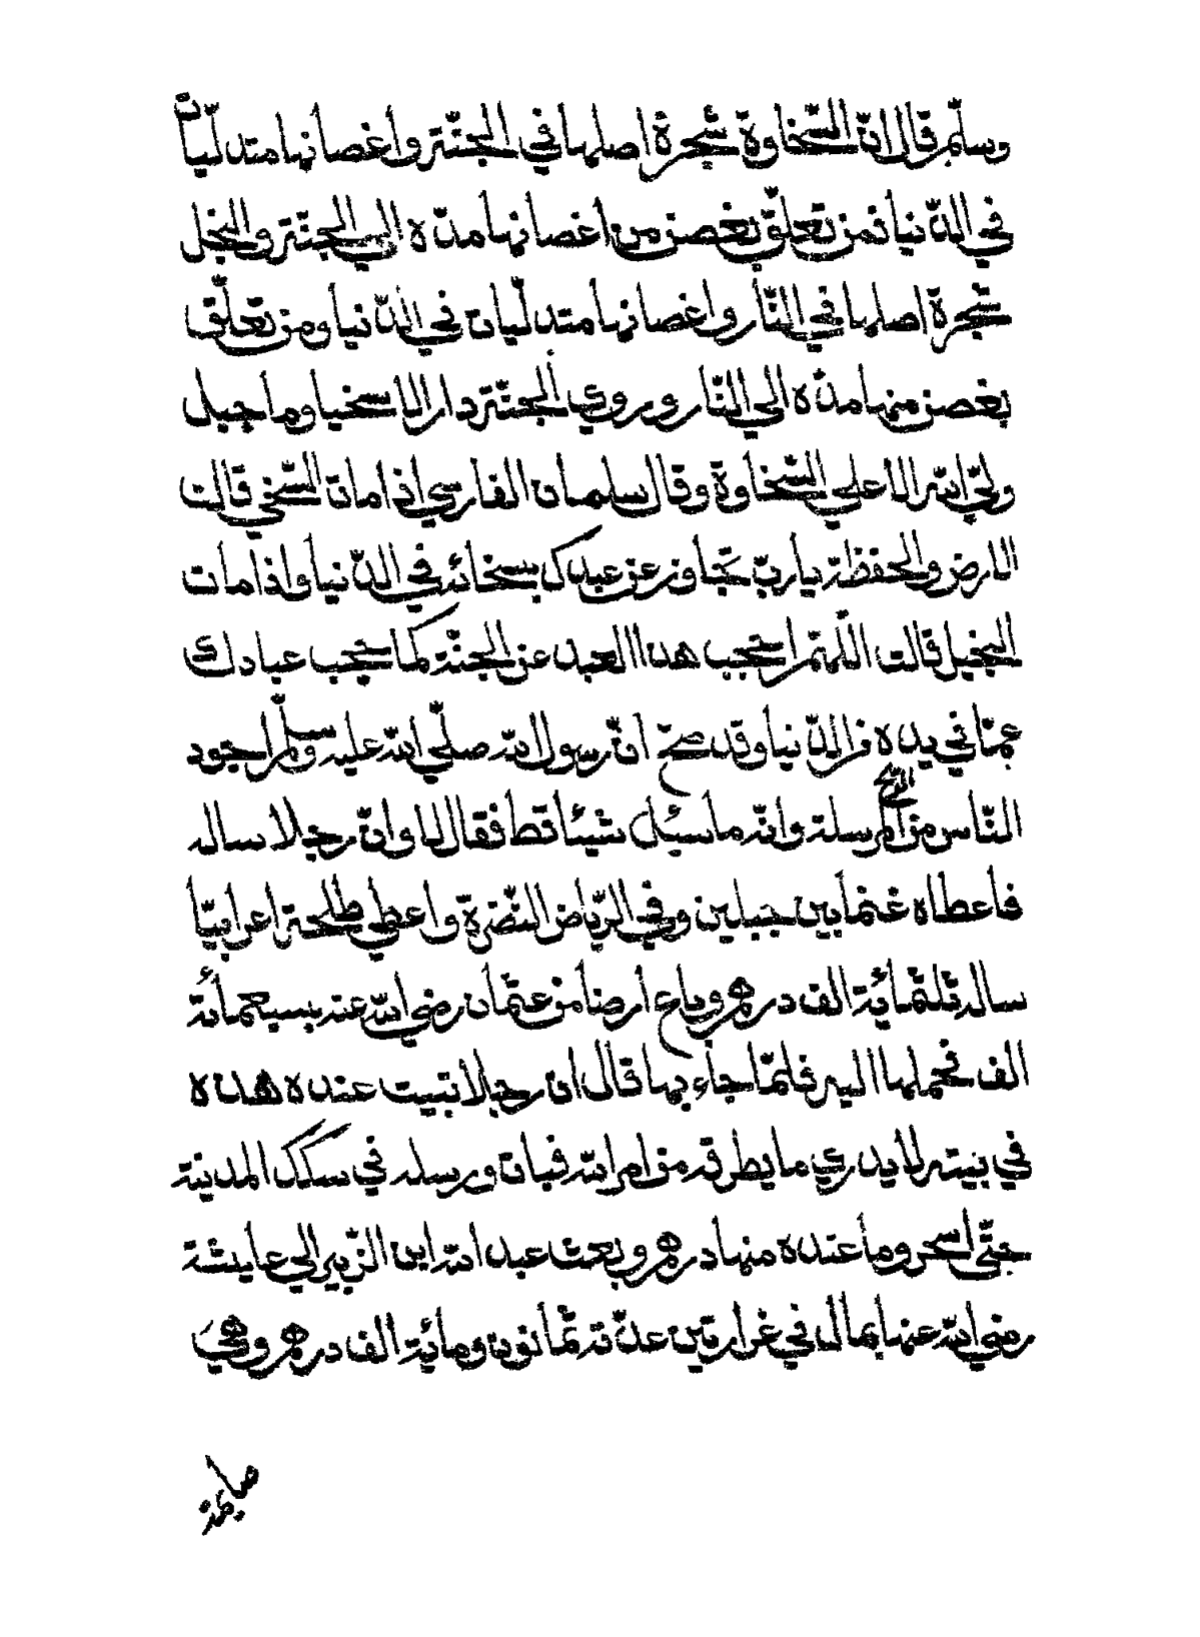 وسلّم قال انّ السّخاوة شجرة اصلها في الجنّة واغصانها متدلّيات
في الدّنيا فمن تعلّق بغصن من اغصانها مدّه الي الجنّة والبخل
شجرة اصلها في النّار واغصانها متدلّيات في الدّنيا ومن تعلّق
بغصن منها مدّه الي النّار وروي الجنّة دار الاسخيا وما جبل
وليّ الله الا علي السّخاوة وقال سلمان الفارسي اذا مات السّخي قالت
الارض والحفظة يارب تجاوز عن عبدك بسخائه في الدّنيا واذا مات
البخيل قالت اللّهمّ احجب هذا العبد عن الجنّة كما حجب عبادك
عمّا في يده من الدّنيا وقد صحّ انّ رسول الله صلّي الله عليه وسلّم اجود
النّاس من الرّيح المرسلة وانّه ما سئل شيئا قط فقال لا وانّ رجلا ساله
فاعطاه غنما بين جبلين وفي الرّياض النّضرة واعطي طلحة اعرابيّا
ساله ثلثمائة الف درهم وباع ارضا من عثمان رضي الله عنه بسبعمائة
الف فحملها اليه فلمّا جاء بها قال ان رجلا تبيت عنده هذه
في بيته لا يدري ما يطرقه من امر الله فبات ورسله في سكك المدينة
حتّي اسحر وما عنده منها درهم وبعث عبد الله ابن الزّبير الي عايشة
رضي الله عنها بمال في غرارتين عدّته ثمانون ومائة الف درهم وهي
صايمة